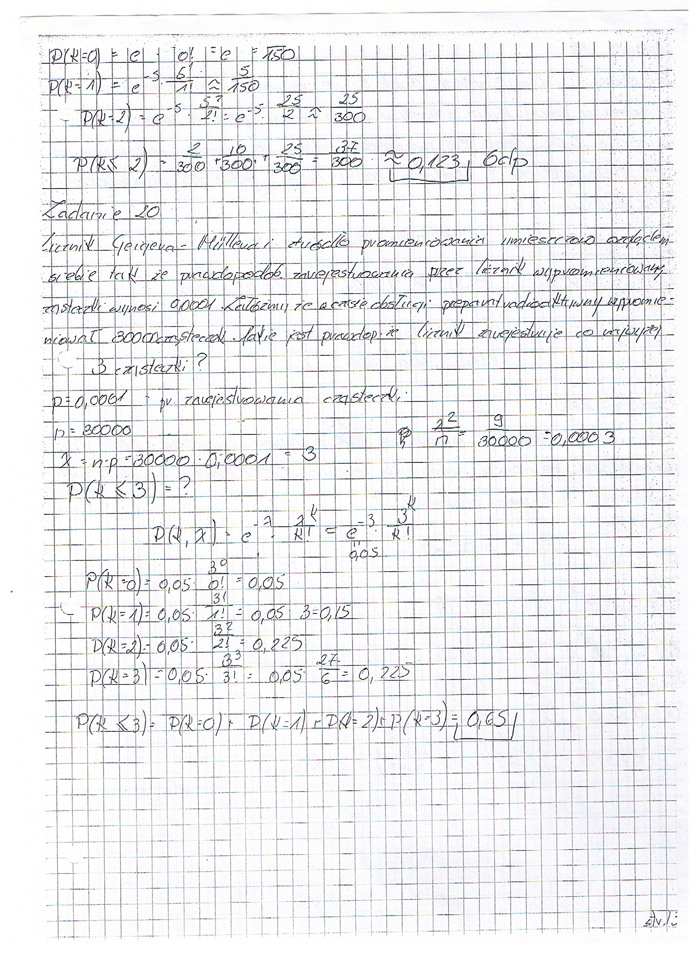 P(k=0) = e · 0! = e = 150
P(k=1) = e⁻⁵ · 5¹/1! ≈ 5/150
P(k=2) = e⁻⁵ · 5²/2! = e⁻⁵ · 25/2 ≈ 25/300
P(k≤2) = 2/300 + 10/300 + 25/300 = 37/300 ≈ 0,123 Odp
Zadanie 20
Licznik Geigera-Müllera i źródło promieniowania umieszczono względem
siebie tak że prawdopodob. zarejestrowania przez licznik wypromieniowanej
cząstki wynosi 0,0001. Załóżmy, że w czasie obsługi preparat radioaktywny wypromie-
niował 30000 cząsteczek. Jakie jest prawdop. że licznik zarejestruje co najwyżej
3 cząstki?
p=0,0001 - pr zarejestrowania cząsteczki.
n=30000
λ = n·p = 30000 · 0,0001 = 3 λ²/n = 9/30000 = 0,0003
P(k≤3) = ?
P(k,λ) = e^-λ · λ^k/k! = e⁻³ · 3^k/k!
0,05
P(k=0) = 0,05 · 3⁰/0! = 0,05
P(k=1) = 0,05 · 3¹/1! = 0,05 · 3 = 0,15
P(k=2) = 0,05 · 3²/2! = 0,225
P(k=3) = 0,05 · 3³/3! = 0,05 · 27/6 = 0,225
P(k≤3) = P(k=0) + P(k=1) + P(k=2) + P(k=3) = 0,65